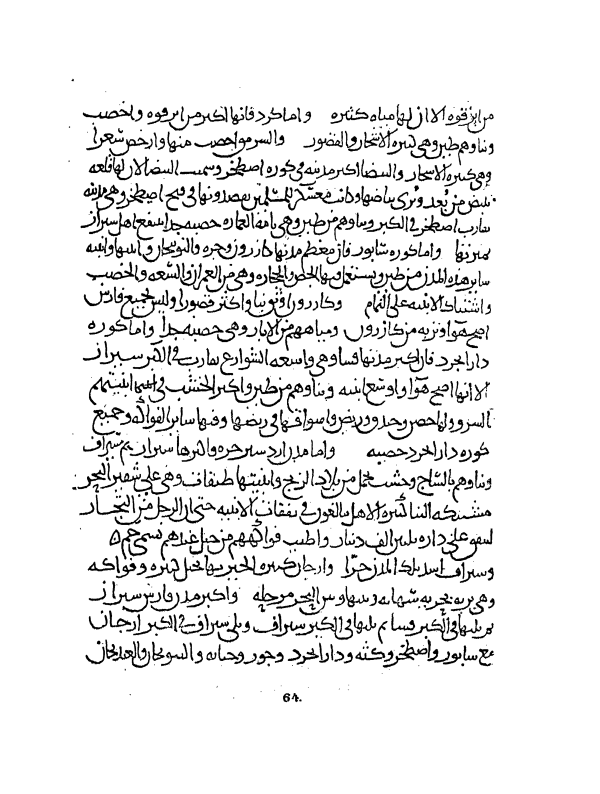 من ابرقوه الا ان لها مياه كثيره واما كرد فانها اكبر من ابرقوه واخصب
وبناوهم طين وهي كثيره الاشجار والقصور والسرمق اخصب منها وارخص سعرا
وهي كثيره الاشجار والبيضا اكبر مدينه في كوره اصطخر وسميت البيضا لان لها قلعه
تبيض من بُعد وتُرى بياضها وكانت معسكر للمسلمين يقصدونها في فتح اصطخر وهي مدينه
تقارب اصطخر في الكبر وبناوهم من طين وهي تامه العماره خصبه جدا ينتفع اهل شيراز
بميرتها واما كوره سابور فان معظم مدنها كازرون وجره والنوبنجان وابنيتها وابنيه
ساير هذه المدن من طين ويستعمل فيها الجص والحجاره وهي من العمران والسعه والخصب
واشتباك الابنيه على التمام وكازرون اوفر بنيا واكثر قصورا وليس بجميع فارس
اصح هوآ وتربه من كازرون ومياههم من الابار وهي خصبه جدا واما كوره
دارابجرد فان اكبر مدنها فسا وهي واسعه الشوارع تقارب في الكبر شيراز
الا انها اصح هوآ واوسع ابنيه وبناوهم من طين واكثر الخشب في ابنيتهم
السرو ولها حصن وخندق وربض واسواقها في ربضها وفيها ساير الفواكه وجميع
كوره دارابجرد خصبه واما مدن اردشير خره واكبرها شيراز ثم سيراف
وبناوهم بالساج وخشب يحمل من بلاد الزنج وابنيتها طبقات وهي على شفير البحر
مشتبكه البنا كثيره الاهل يبالغون في نفقات الابنيه حتى ان الرجل من التجار
لينفق على داره ثلثين الف دينار واطيب فواكههم من جبل عندهم يسمى جم
وسيراف اشد تلك المدن حرّا وارجان كبيره الخير بها نخيل كثيره وفواكه
وهي بريه بحريه سهليه وبينها وبين البحر مرحله واكبر مدن فارس شيراز
ثم يليها في الكبر فسا ثم يليها في الكبر سيراف ويلي سيراف في الكبر ارجان
مع سابور واصطخر وكثه ودارابجرد وجور وجنابه والنوبنجان والغندجان
64.